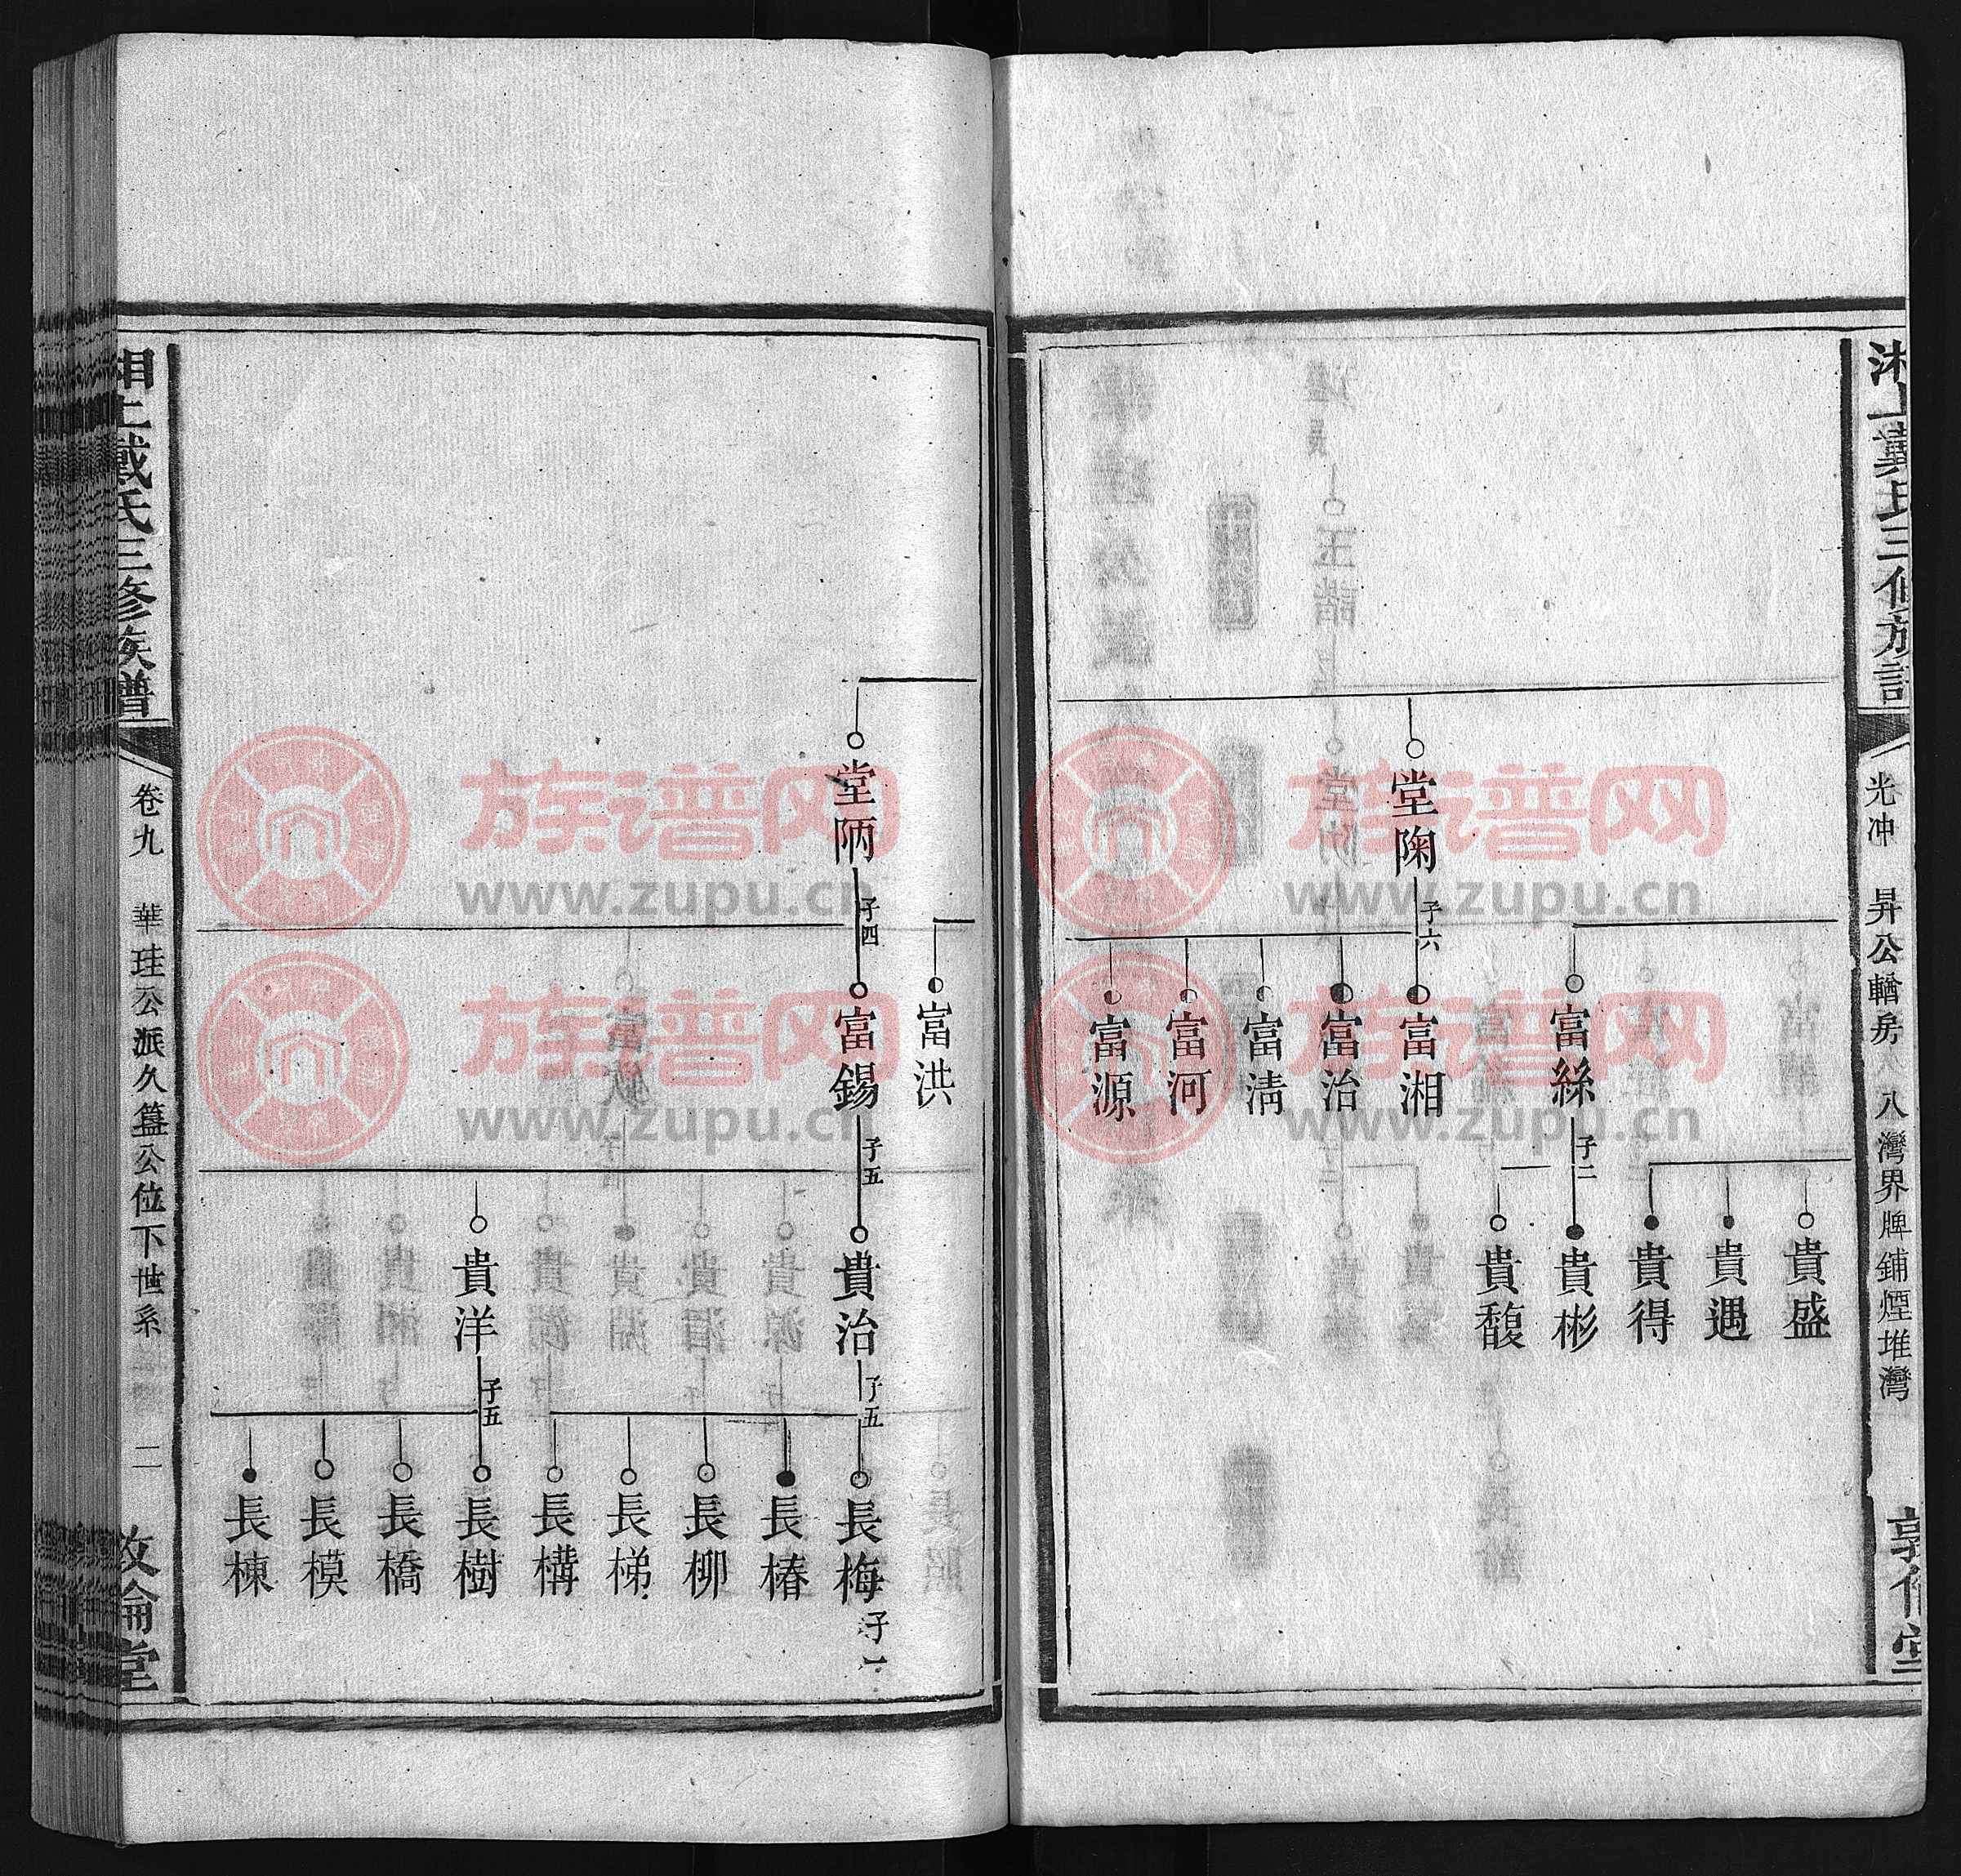 湘上戴氏三修族譜
光冲　昇公輶房　八灣界牌鋪煙堆灣
敦倫堂
堂陶
子六
富絲
子二
富湘
富治
富清
富河
富源
貴盛
貴遇
貴得
貴彬
貴馥
堂陃
子四
富洪
富錫
子五
貴治
子五
貴洋
子五
長梅
子一
長椿
長柳
長梯
長構
長樹
長橋
長模
長棟
湘上戴氏三修族譜
卷九　華珪公派久簋公位下世系　二
敦倫堂
族谱网
www.zupu.cn
族谱网
www.zupu.cn
族谱网
www.zupu.cn
族谱网
www.zupu.cn